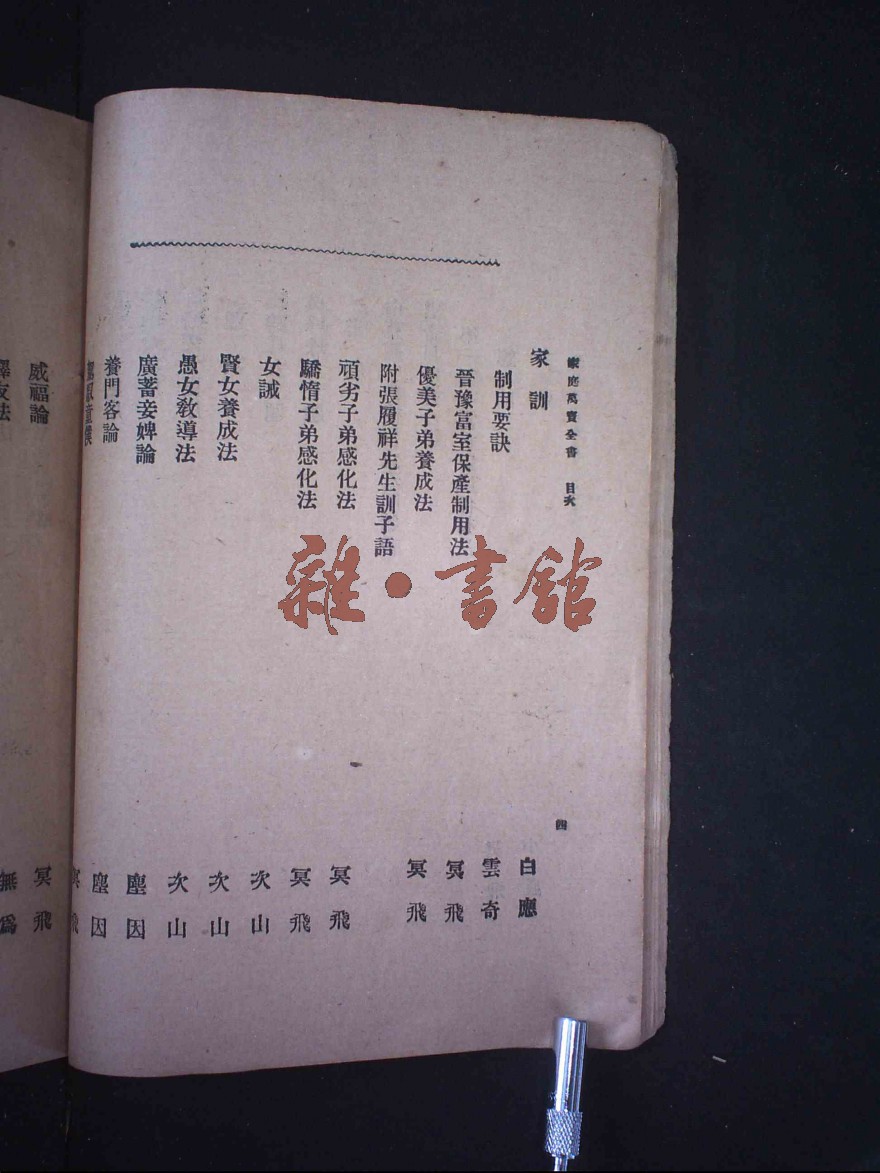 家庭萬寶全書 目次 四
家訓 白應
制用要訣 雲奇
晉豫富室保產制用法 冥飛
優美子弟養成法 冥飛
附張履祥先生訓子語
頑劣子弟感化法 冥飛
驕惰子弟感化法 冥飛
女誡 次山
賢女養成法 次山
愚女教導法 次山
廣蓄妾婢論 塵因
養門客論 塵因
冥飛
威福論 冥飛
擇友法 無為
雜•書館